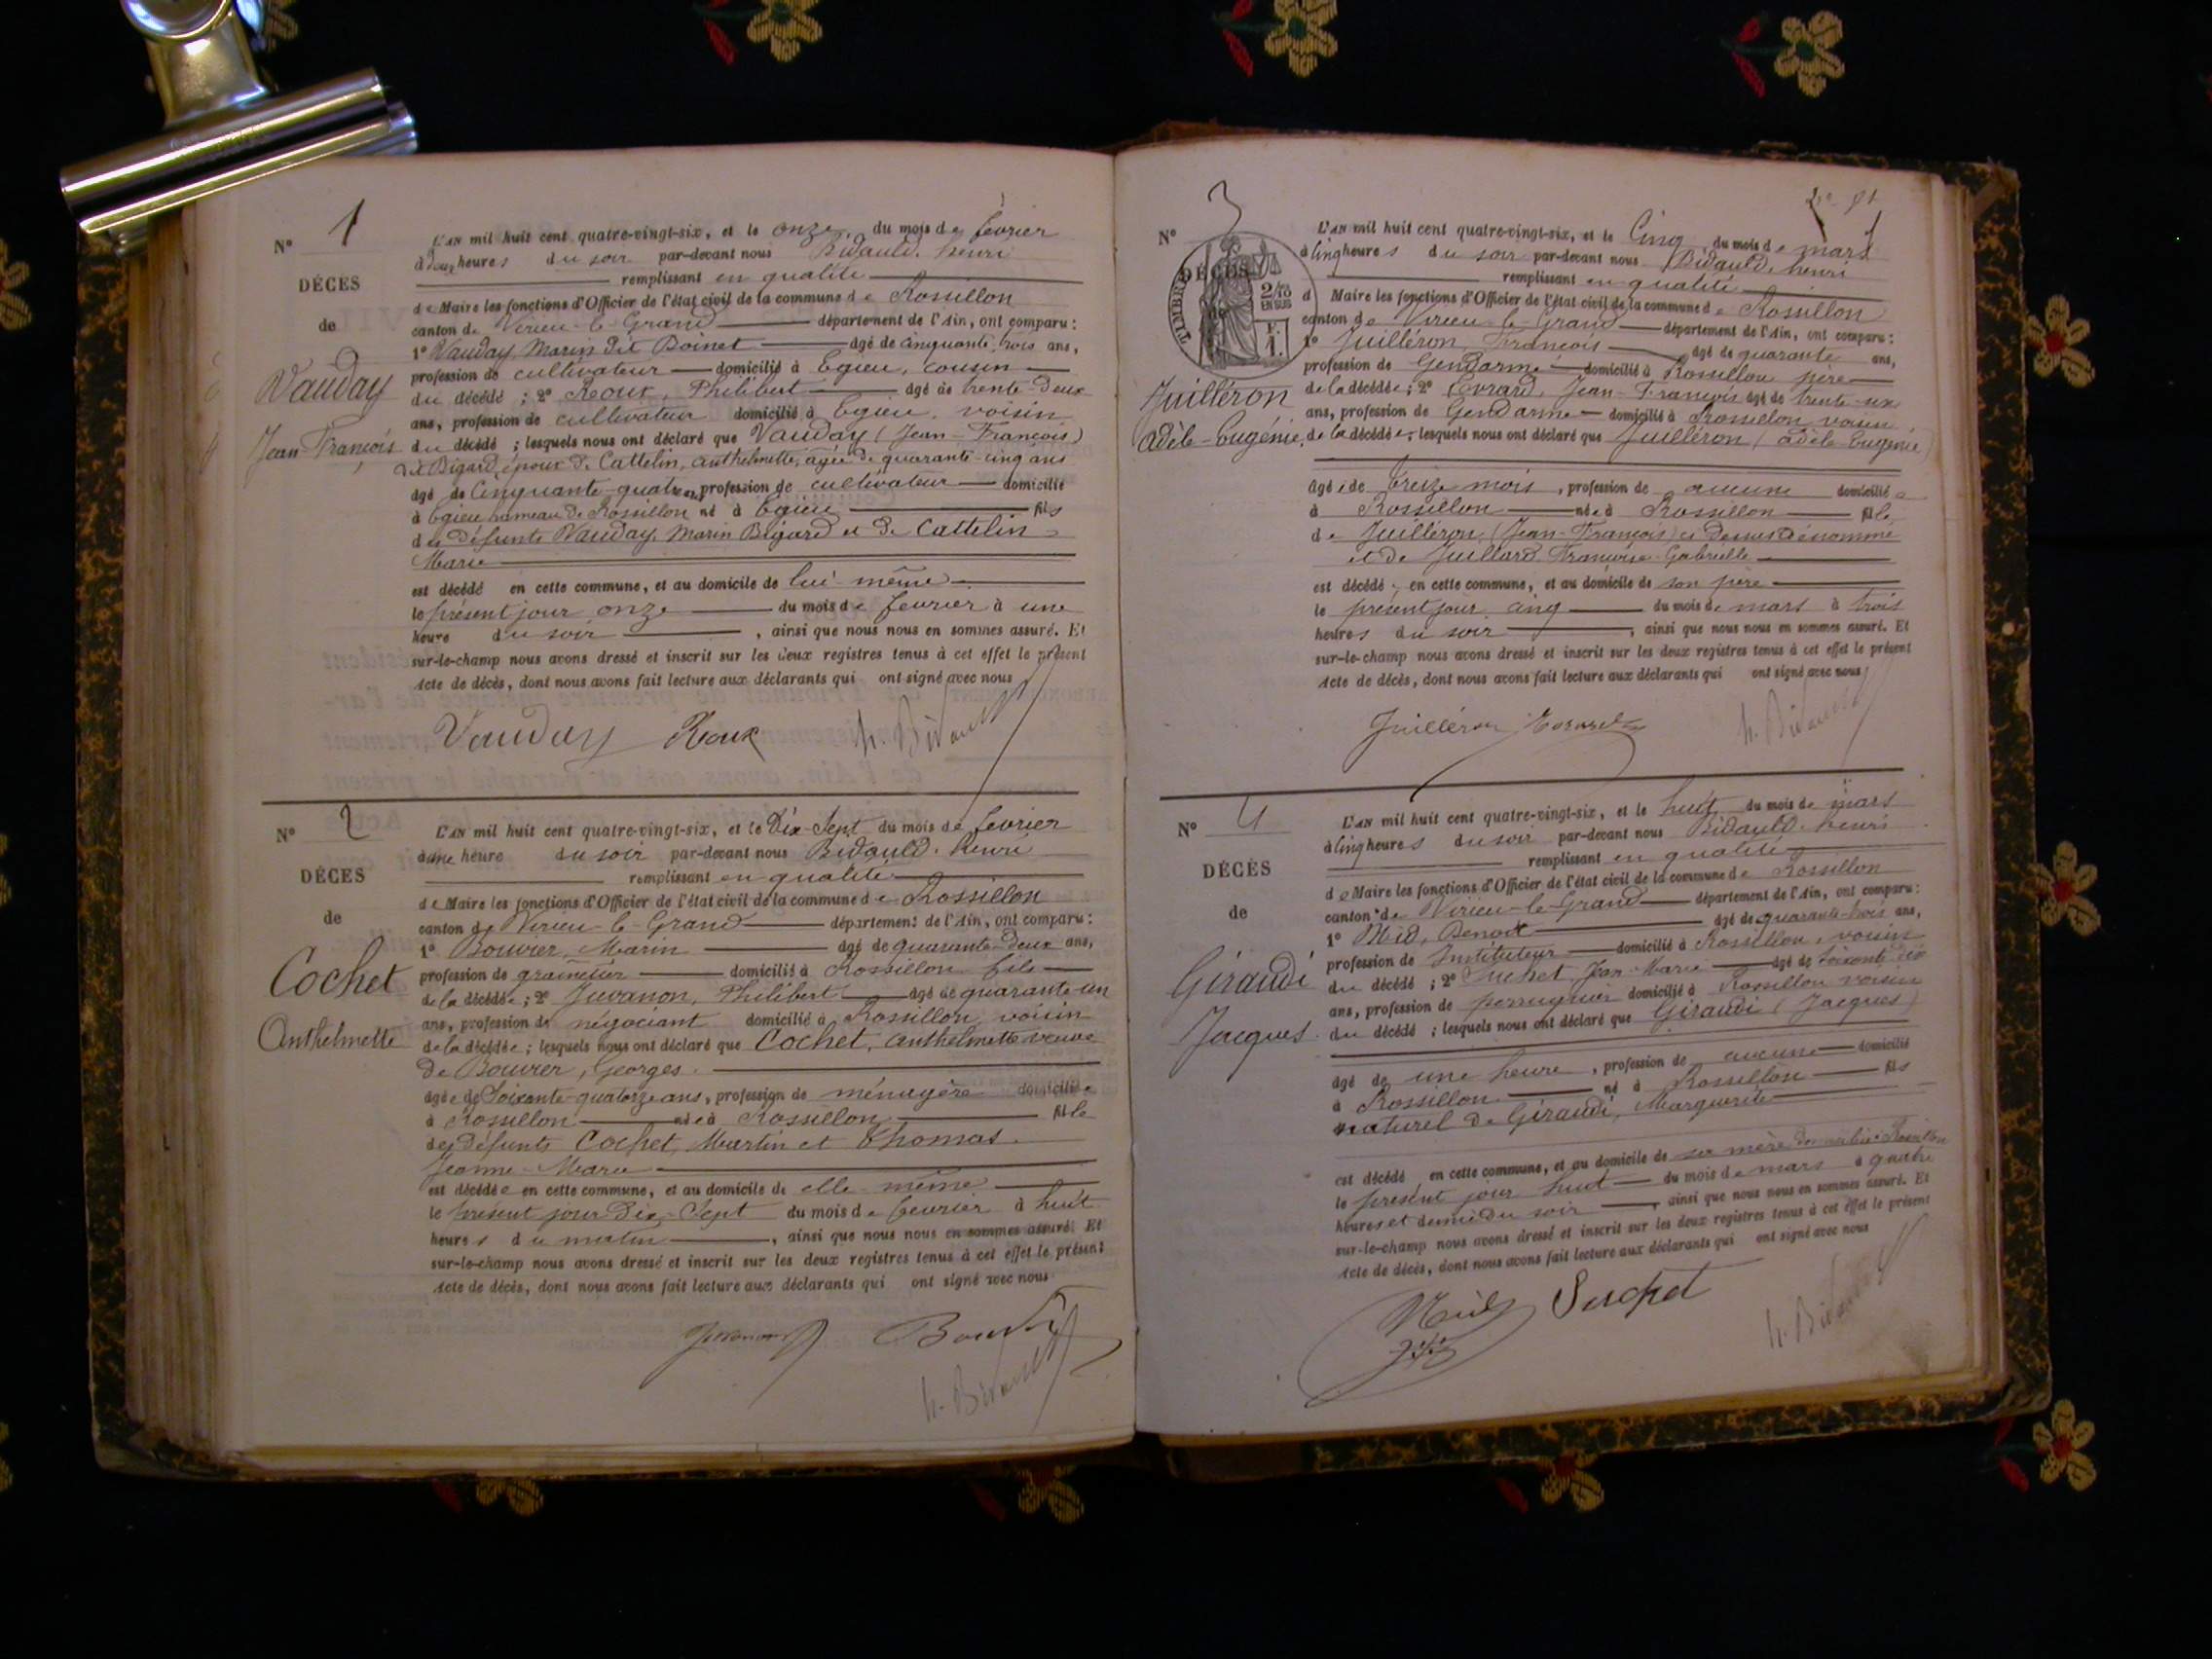 N° 1
DÉCES
de
Vauday
Jean-François
L'AN mil huit cent quatre-vingt-six, et le onze, du mois de février
à deux heures du soir par-devant nous Bidauld, henri
remplissant en qualité
de Maire les fonctions d'Officier de l'état civil de la commune de Rossillon
canton de Virieu-le-Grand département de l'Ain, ont comparu :
1° Vauday Marin dit Boinet âgé de cinquante trois ans,
profession de cultivateur domicilié à Egieu, cousin
du décédé ; 2° Roux, Philibert âgé de trente-deux
ans, profession de cultivateur domicilié à Egieu, voisin
du décédé ; lesquels nous ont déclaré que Vauday (Jean-François)
dit Bigard, époux de Cattelin, anthelmette, agée de quarante-cinq ans
âgé de Cinquante-quatre ans, profession de cultivateur domicilié
à Egieu hameau de Rossillon né à Egieu fils
des défunts Vauday, Marin Bigard et de Cattelin
Marie
est décédé en cette commune, et au domicile de lui-même
le présent jour onze du mois de fevrier à une
heure du soir, ainsi que nous nous en sommes assuré. Et
sur-le-champ nous avons dressé et inscrit sur les deux registres tenus à cet effet le présent
Acte de décès, dont nous avons fait lecture aux déclarants qui ont signé avec nous
Vauday Roux h. Bidauld
N° 2
DÉCES
de
Cochet
Anthelmette
L'AN mil huit cent quatre-vingt-six, et le Dix-Sept du mois de fevrier
à une heure du soir par-devant nous Bidauld, henri
remplissant en qualité
de Maire les fonctions d'Officier de l'état civil de la commune de Rossillon
canton de Virieu-le-Grand département de l'Ain, ont comparu :
1° Bouvier, Marin âgé de quarante-deux ans,
profession de grainetier domicilié à Rossillon fils
de la décédée ; 2° Juvanon, Philibert âgé de quarante-un
ans, profession de négociant domicilié à Rossillon, voisin
de la décédée ; lesquels nous ont déclaré que Cochet, anthelmette veuve
de Bouvier, Georges.
âgée de Soixante-quatorze ans, profession de ménagère domiciliée
à Rossillon née à Rossillon fille
des défunts Cochet, Martin et Thomas
Jeanne-Marie
est décédée en cette commune, et au domicile de elle-même
le présent jour Dix-Sept du mois de fevrier à huit
heures du matin, ainsi que nous nous en sommes assuré. Et
sur-le-champ nous avons dressé et inscrit sur les deux registres tenus à cet effet le présent
Acte de décès, dont nous avons fait lecture aux déclarants qui ont signé avec nous
Juvanon Bouvier
h. Bidauld
N° 3
TIMBRE
2/10 EN SUS
F. 1.
DÉCES
de
Juilléron
Adèle-Eugénie
L'AN mil huit cent quatre-vingt-six, et le Cinq du mois de mars
à cinq heures du soir par-devant nous Bidauld, henri
remplissant en qualité
d Maire les fonctions d'Officier de l'état civil de la commune de Rossillon
canton de Virieu-le-Grand département de l'Ain, ont comparu :
1° Juilléron, François âgé de quarante ans,
profession de Gendarme domicilié à Rossillon père
de la décédée ; 2° Evrard, Jean-François âgé de trente-six
ans, profession de Gendarme domicilié à Rossillon voisin
de la décédée ; lesquels nous ont déclaré que Juilléron (adèle Eugénie)
âgée de treize mois, profession de aucune domiciliée
à Rossillon née à Rossillon fille
de Juilléron, (Jean-François) ci dessus dénommé
et de Juillard Françoise-Gabrielle
est décédé, en cette commune, et au domicile de son père
le présent jour cinq du mois de mars à trois
heures du soir, ainsi que nous nous en sommes assuré. Et
sur-le-champ nous avons dressé et inscrit sur les deux registres tenus à cet effet le présent
Acte de décès, dont nous avons fait lecture aux déclarants qui ont signé avec nous
Juilléron Evrard h. Bidauld
N° 4
DÉCES
de
Giraudi
Jacques
L'AN mil huit cent quatre-vingt-six, et le huit du mois de mars
à cinq heures du soir par-devant nous Bidauld, henri
remplissant en qualité
de Maire les fonctions d'Officier de l'état civil de la commune de Rossillon
canton de Virieu-le-Grand département de l'Ain, ont comparu :
1° Mid, Benoit âgé de quarante-trois ans,
profession de Instituteur domicilié à Rossillon, voisin
du décédé ; 2° Suchet Jean-Marie âgé de soixante-dix
ans, profession de perruquier domicilié à Rossillon voisin
du décédé ; lesquels nous ont déclaré que Giraudi (Jacques)
âgé de une heure, profession de aucune domicilié
à Rossillon né à Rossillon fils
naturel de Giraudi, Marguerite
est décédé en cette commune, et au domicile de sa mère domiciliée à Rossillon
le présent jour huit du mois de mars à quatre
heures et demie du soir, ainsi que nous nous en sommes assuré. Et
sur-le-champ nous avons dressé et inscrit sur les deux registres tenus à cet effet le présent
Acte de décès, dont nous avons fait lecture aux déclarants qui ont signé avec nous
Mid Suchet
h. Bidauld